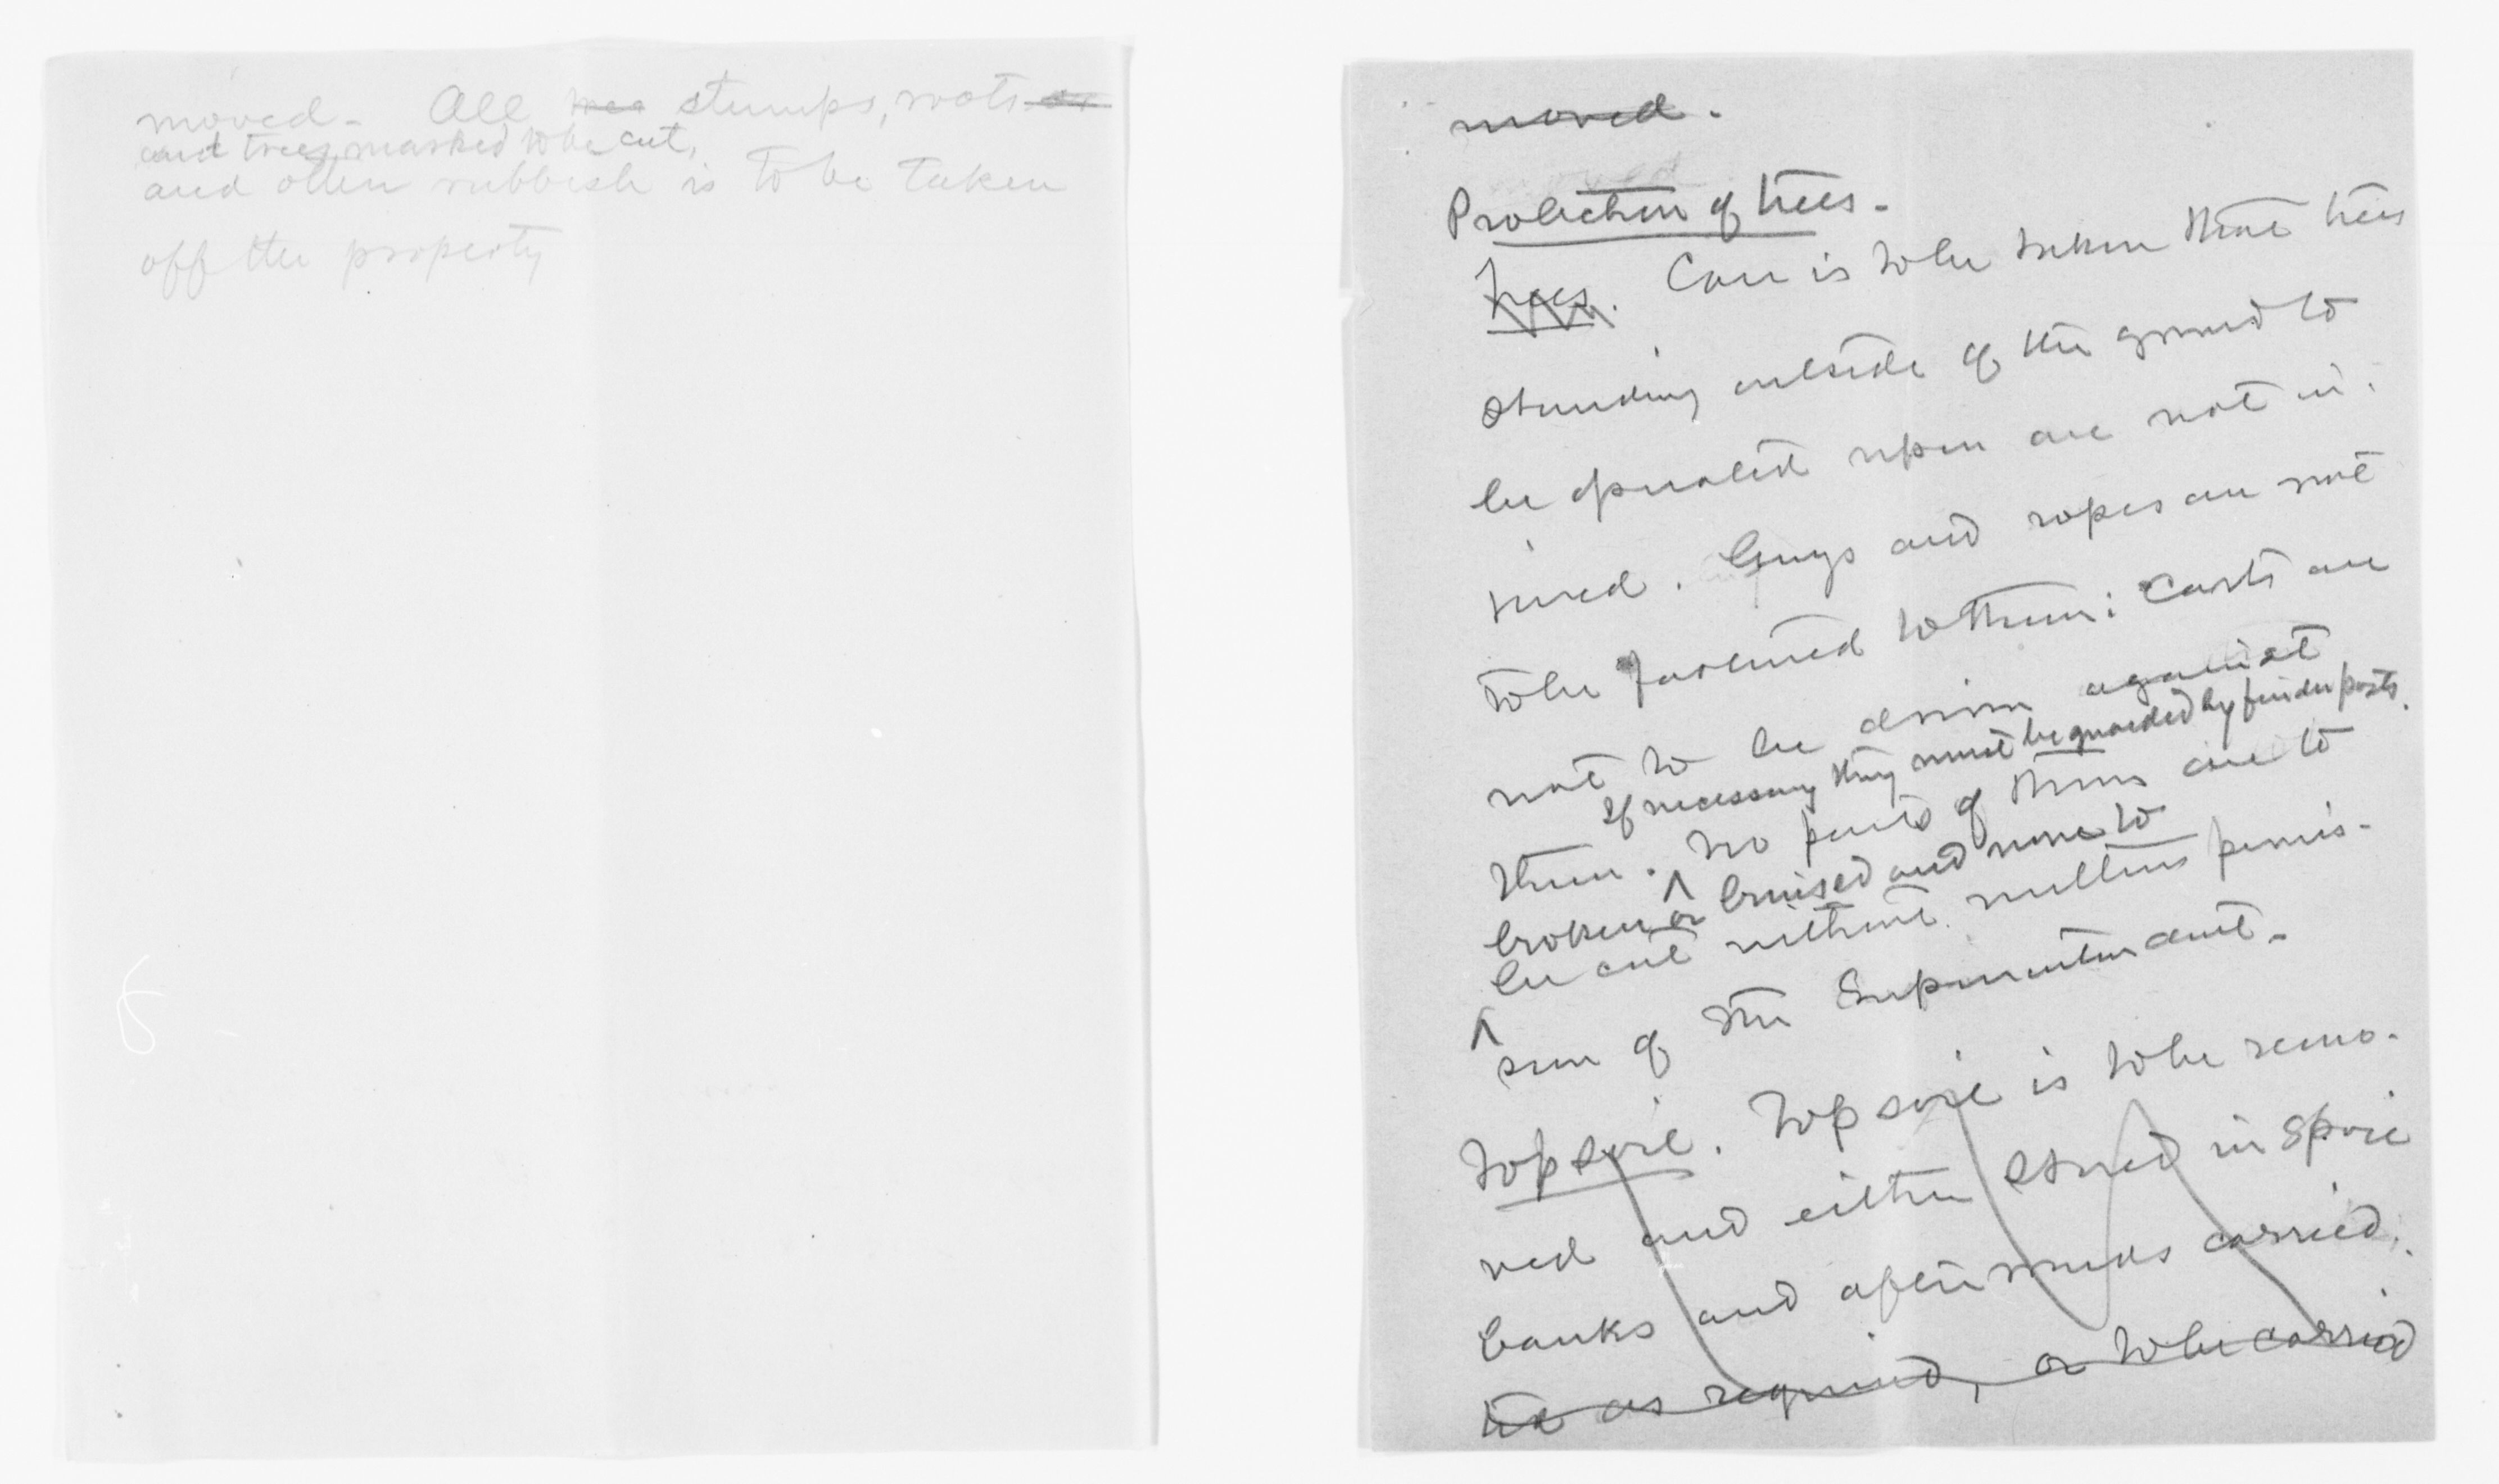 moved. All tree stumps, roots or
and trees marked to be cut,
and other rubbish is to be taken
off the property
moved.
moved
Protection of trees.
Trees. Care is to be taken that trees
standing outside of the ground to
be operated upon are not in-
jured. Guys and ropes are not
to be fastened to them: carts are
not to be driven against
If necessary they must be guarded by fender posts.
them. No parts of them are to
broken or bruised and none to
be cut without written permis-
sion of the Superintendent.
Topsoil. Topsoil is to be remo-
ved and either stored in spoil
banks and afterwards carried.
as required, or to be carried